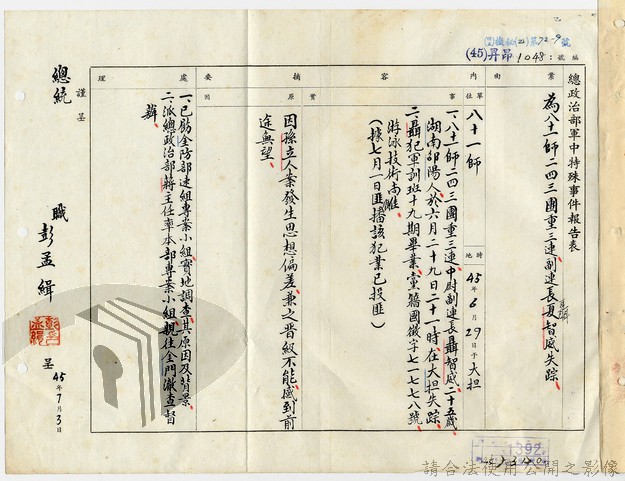 (45)昇昂1048
編號：
總政治部軍中特殊事件報告表
案由
為八十一師二四三團重三連副連長夏智威失踪
聶
單位
八十一師
時地
45年6月29日于大担
內容
事實
一、八十一師二四三團重三連中尉副連長聶智威二十五歲
湖南邵陽人於六月二十九日二十一時在大担失踪
二、聶犯軍訓班十九期畢業黨籍國徽字七一七七八號
游泳技術尚雕
（據七月一日匪播該犯業已投匪）
摘要
原因
因孫立人案發生思想偏差兼之晉級不能感到前
途無望
處理
一、已飭金防部速組專案小組實地調查其原因及背景
二、派總政治部蔣主任率本部專案小組親往金門澈查督
辦
謹呈
總統
職 彭孟緝 呈
45年7月3日
1392
請合法使用公開之影像